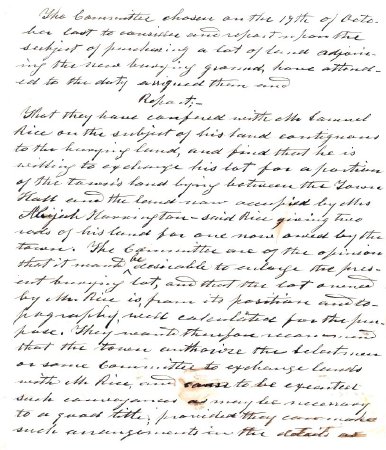 The Committee chosen on the 17th of Octo-
ber last to consider and report upon the
subject of purchasing a lot of land adjoin-
ing the new burying ground, have attend-
ed to the duty assigned them and
Report;-
That they have confered with Mr Samuel
Rice on the subject of his land contiguous
to the burying land, and find that he is
willing to exchange his lot for a portion
of the town's land lying between the Town
Hall and the land now occupied by Mrs
Harrington - said Rice giving two
rods of his land for one now owned by the
town. The Committee are of the opinion
that it would be desirable to enlarge the pres-
ent burying lot, and that the lot owned
by Mr. Rice is, from its position and to-
pography, well calculated for the pur-
pose. They would therefore recommend
that the town authorize the Selectmen
or some Committee to exchange lands
with Mr Rice, and cause to be executed
such conveyances as may be necessary
to a good title; provided they can make
such arrangements in the details as